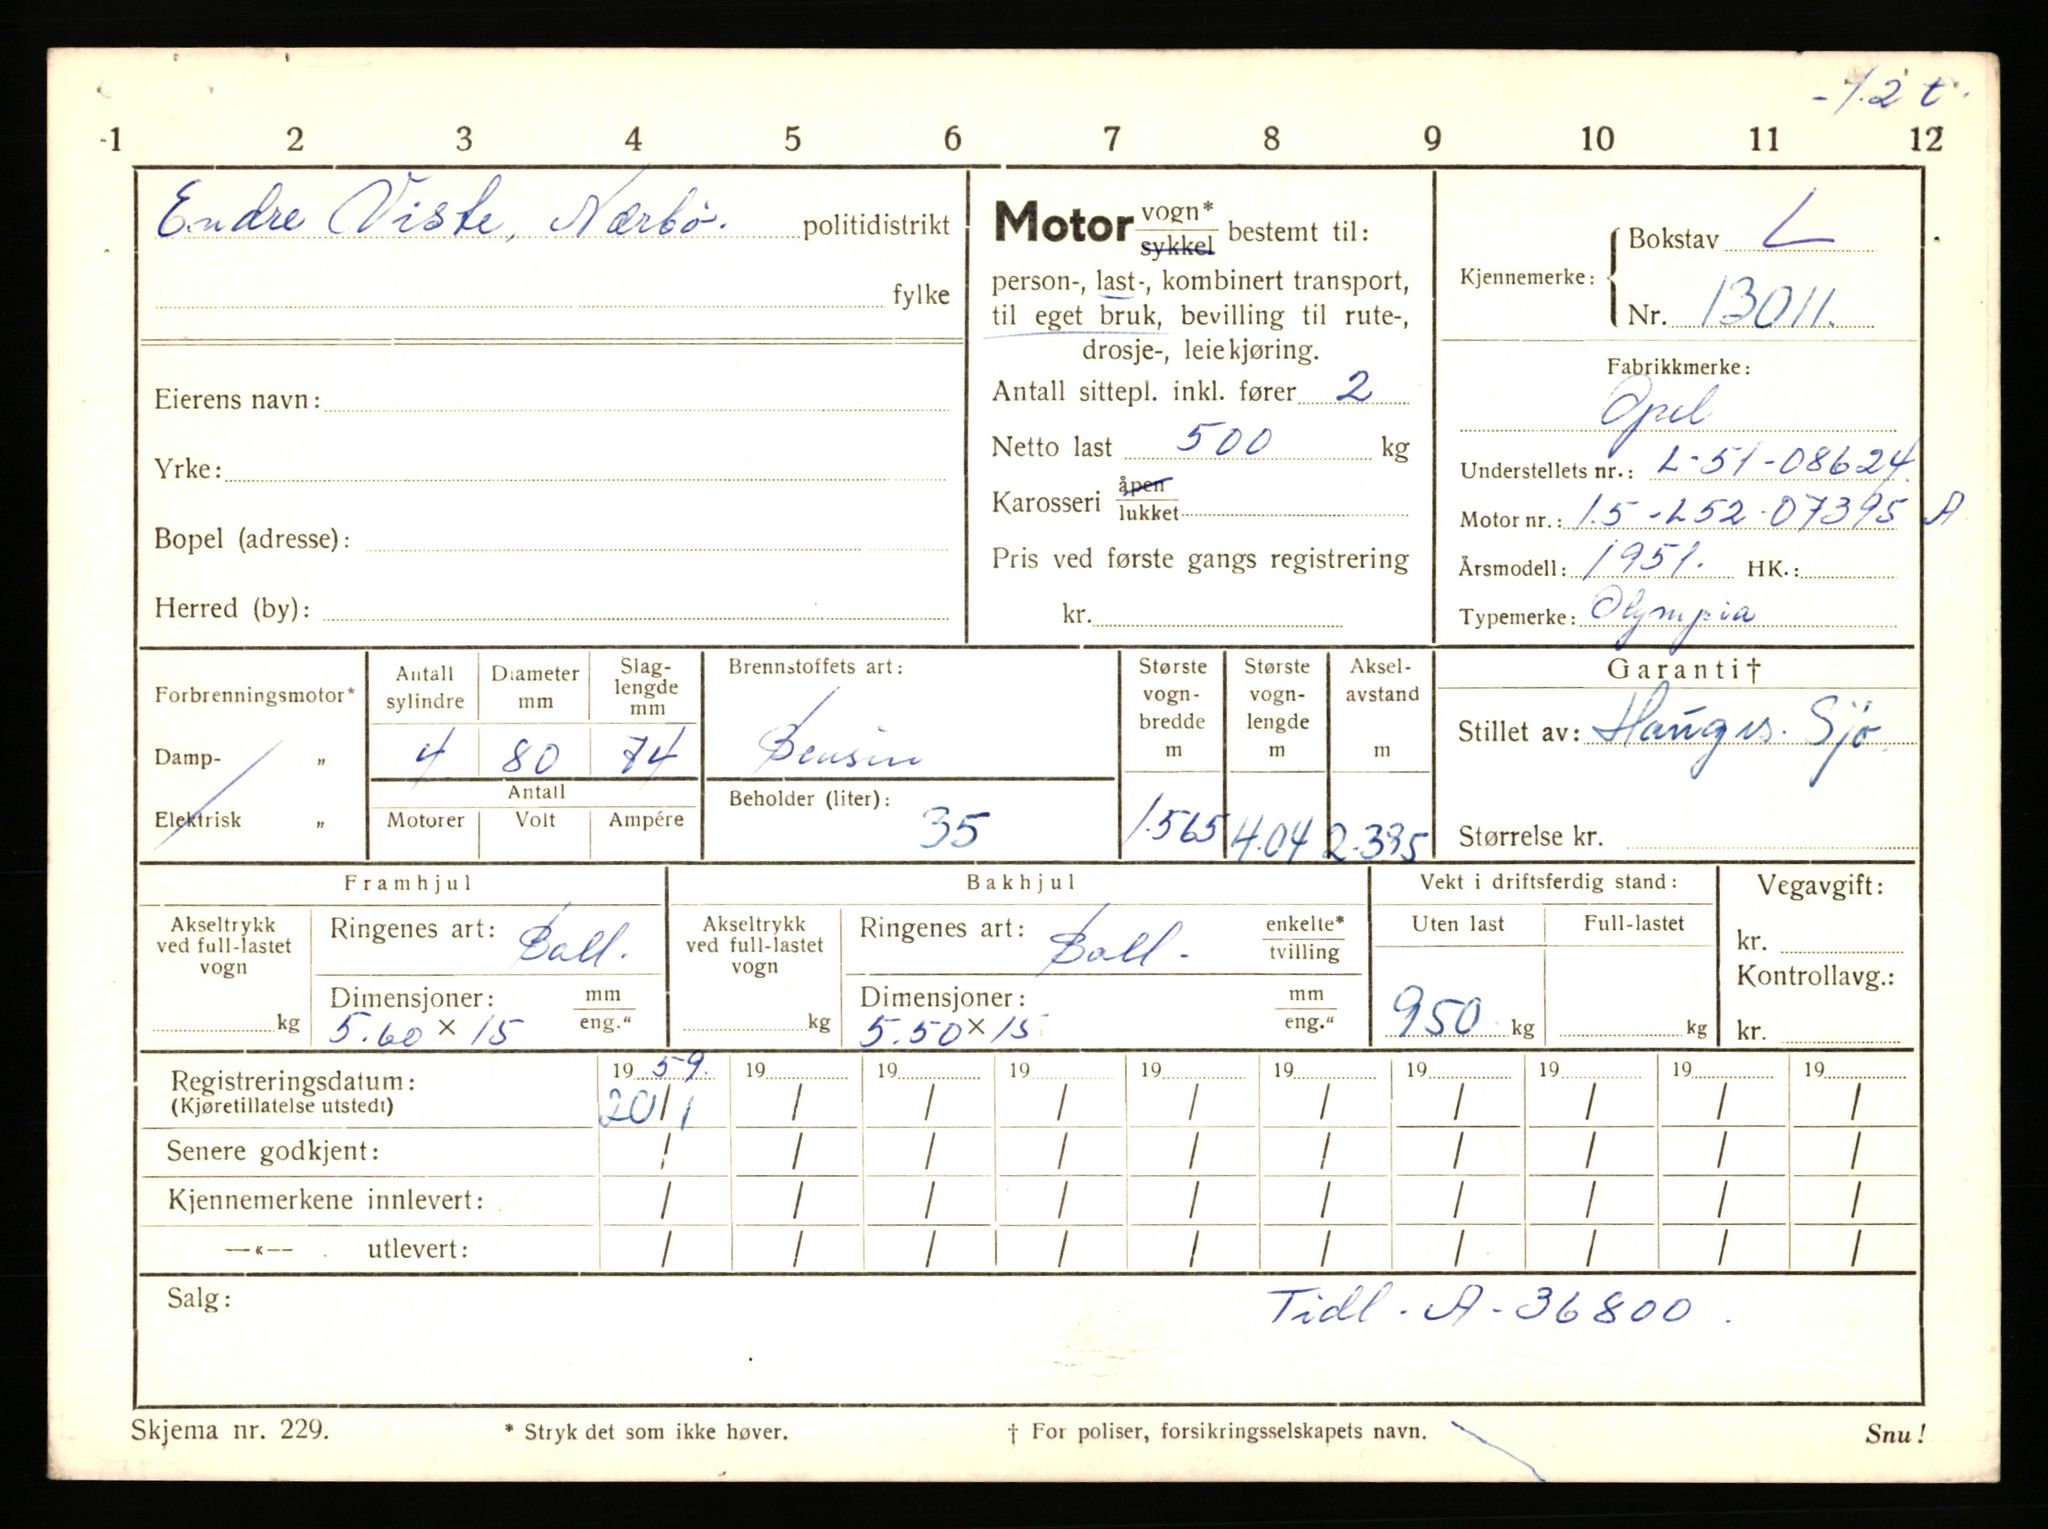 -1.2 t.
-1 2 3 4 5 6 7 8 9 10 11 12
Endre Viste, Nærbö. politidistrikt
fylke
Eierens navn:
Yrke:
Bopel (adresse):
Herred (by):
Motor vogn*
sykkel bestemt til:
person-, last-, kombinert transport,
til eget bruk, bevilling til rute-,
drosje-, leiekjøring.
Antall sittepl. inkl. fører 2
Netto last 500 kg
Karosseri åpen
lukket
Pris ved første gangs registrering
kr.
Kjennemerke: Bokstav L
Nr. 13011.
Fabrikkmerke:
Opel
Understellets nr.: L-51-08624
Motor nr.: 1.5-L52-07395 A
Årsmodell: 1951. HK.:
Typemerke: Olympia
Forbrenningsmotor*
Damp- „
Elektrisk „
Antall sylindre
4
Diameter mm
80
Slag-
lengde
mm
74
Antall
Motorer Volt Ampére
Brennstoffets art:
Bensin
Beholder (liter):
35
Største
vogn-
bredde
m
1.565
Største
vogn-
lengde
m
4.04
Aksel-
avstand
m
2.395
Garanti†
Stillet av: Hauges. Sjö
Størrelse kr.
Framhjul
Akseltrykk
ved full-lastet
vogn
kg
Ringenes art: Ball.
Dimensjoner: mm
eng."
5.60 × 15
Bakhjul
Akseltrykk
ved full-lastet
vogn
kg
Ringenes art: Ball. enkelte*
tvilling
Dimensjoner: mm
eng."
5.50 × 15
Vekt i driftsferdig stand:
Uten last Full-lastet
950 kg kg
Vegavgift:
kr.
Kontrollavg.:
kr.
Registreringsdatum: 19 59. 19 19 19 19 19 19 19 19 19
(Kjøretillatelse utstedt) 20/1 / / / / / / / / /
Senere godkjent: / / / / / / / / / /
Kjennemerkene innlevert: / / / / / / / / / /
—«— utlevert: / / / / / / / / / /
Salg: Tidl. A-36800.
Skjema nr. 229. * Stryk det som ikke høver. † For poliser, forsikringsselskapets navn. Snu!